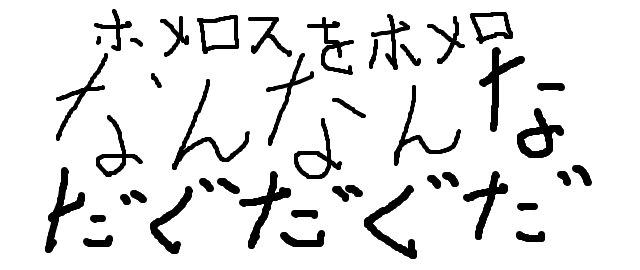 ホメロスをホメロ
なんなんな
だぐだぐだ